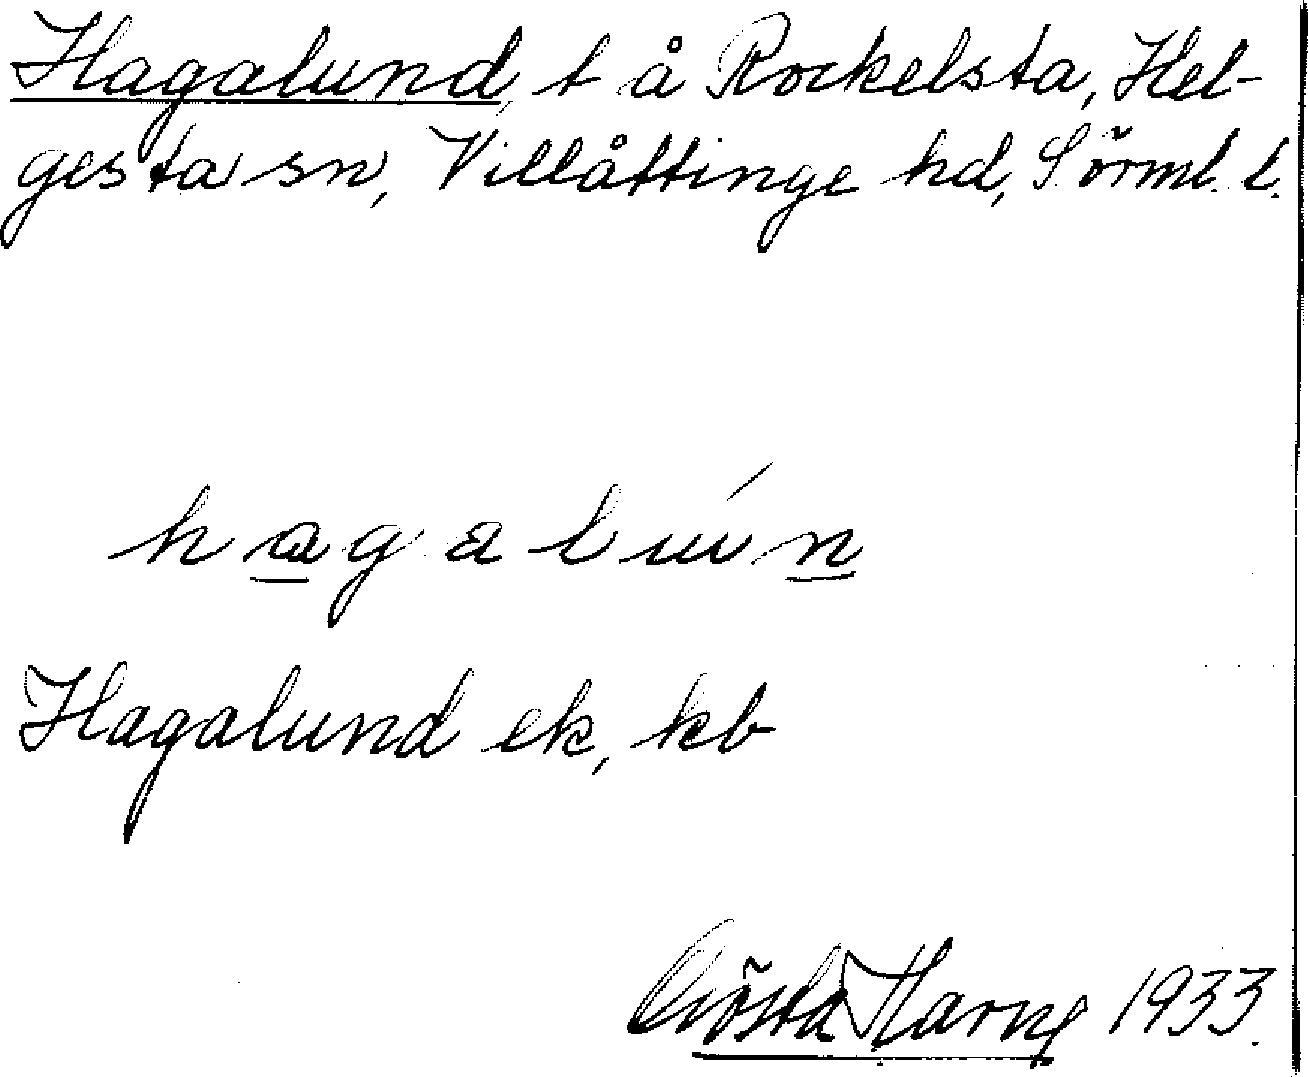 Hagalund, t å Rockelsta, Hel-
gesta sn, Villåttinge hd, Sörml. l.
hagalún
Hagalund ek, kb
Gösta Harne 1933.